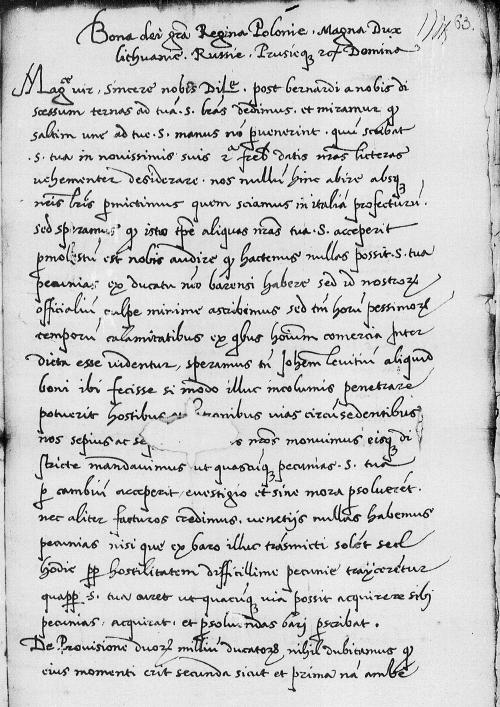 63.
Bona dei gr̃a Regina Polonie. Magna Dux
lithuanie. Russie. Prusieqz rč Domina
Magce vir, sincere nobis Dile. post bernardi a nobis di
scessum ternas ad tuã. S. lr̃as dedimus. et miramur qꝫ
saltim une ad tue. S. manus nõ ꝑvenerint. quũ scribat
.S. tua in novissimis suis 2a febr̃ datis nr̃as licteras
vehementer desiderare. nos nullũ hinc abire absqꝫ
nr̃is lr̃is ꝑmictimus quem sciamus in italiã profecturũ.
sed speramus qꝫ isto tp̃e aliquas nr̃as tua .S. acceperit
ꝑmolestũ est nobis audire qꝫ hactenus nullas possit .S. tua
pecunias ex ducatu nr̃o barensi habere sed id nostroꝝ
officialiũ culpe minime ascribimus sed tm̃ horũ pessimoꝝ
temporũ calamitatibus ex qbus hoĩum comercia inter
dicta esse videntur, speramus tñ Joħem levitiũ aliquid
boni ibi fecisse si modo illuc incolumis penetrare
potuerit hostibus manibus vias circũsedentibus
nos sepius ac se s nr̃os monuimus eisqꝫ di
stricte mandavimus ut quascũqꝫ pecunias .S. tua
ꝑ cambiũ acceperit, evestigio et sine mora ꝑsolverẽt.
nec aliter facturos credimus, venetijs nullas habemus
pecunias nisi que ex baro illuc trãsmicti solẽt sed
hodie ꝓꝑ hostilitatem difficilime pecunie trayceretur
quaꝓꝑ .S. tua curet ut quacũqꝫ via possit acquirere sibi
pecunias, acquirat. et ꝑsolvẽdas barj ꝑscribat.
De Provisione duoꝝ milliũ ducatoꝝ nihil dubitamus qꝫ
eius momenti erit secunda sicut et prima nã ambe